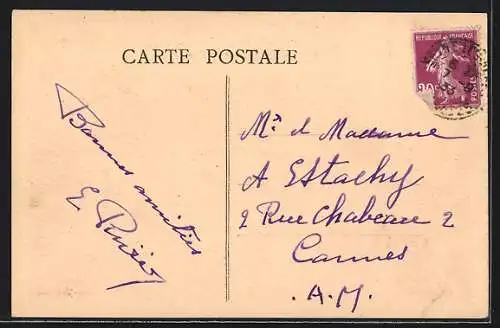 CARTE POSTALE
REPUBLIQUE FRANÇAISE
20c
Bonnes amitiés
E.
Mr & Madame
A Estachy
2 Rue Chabaud 2
Cannes
. A. M.